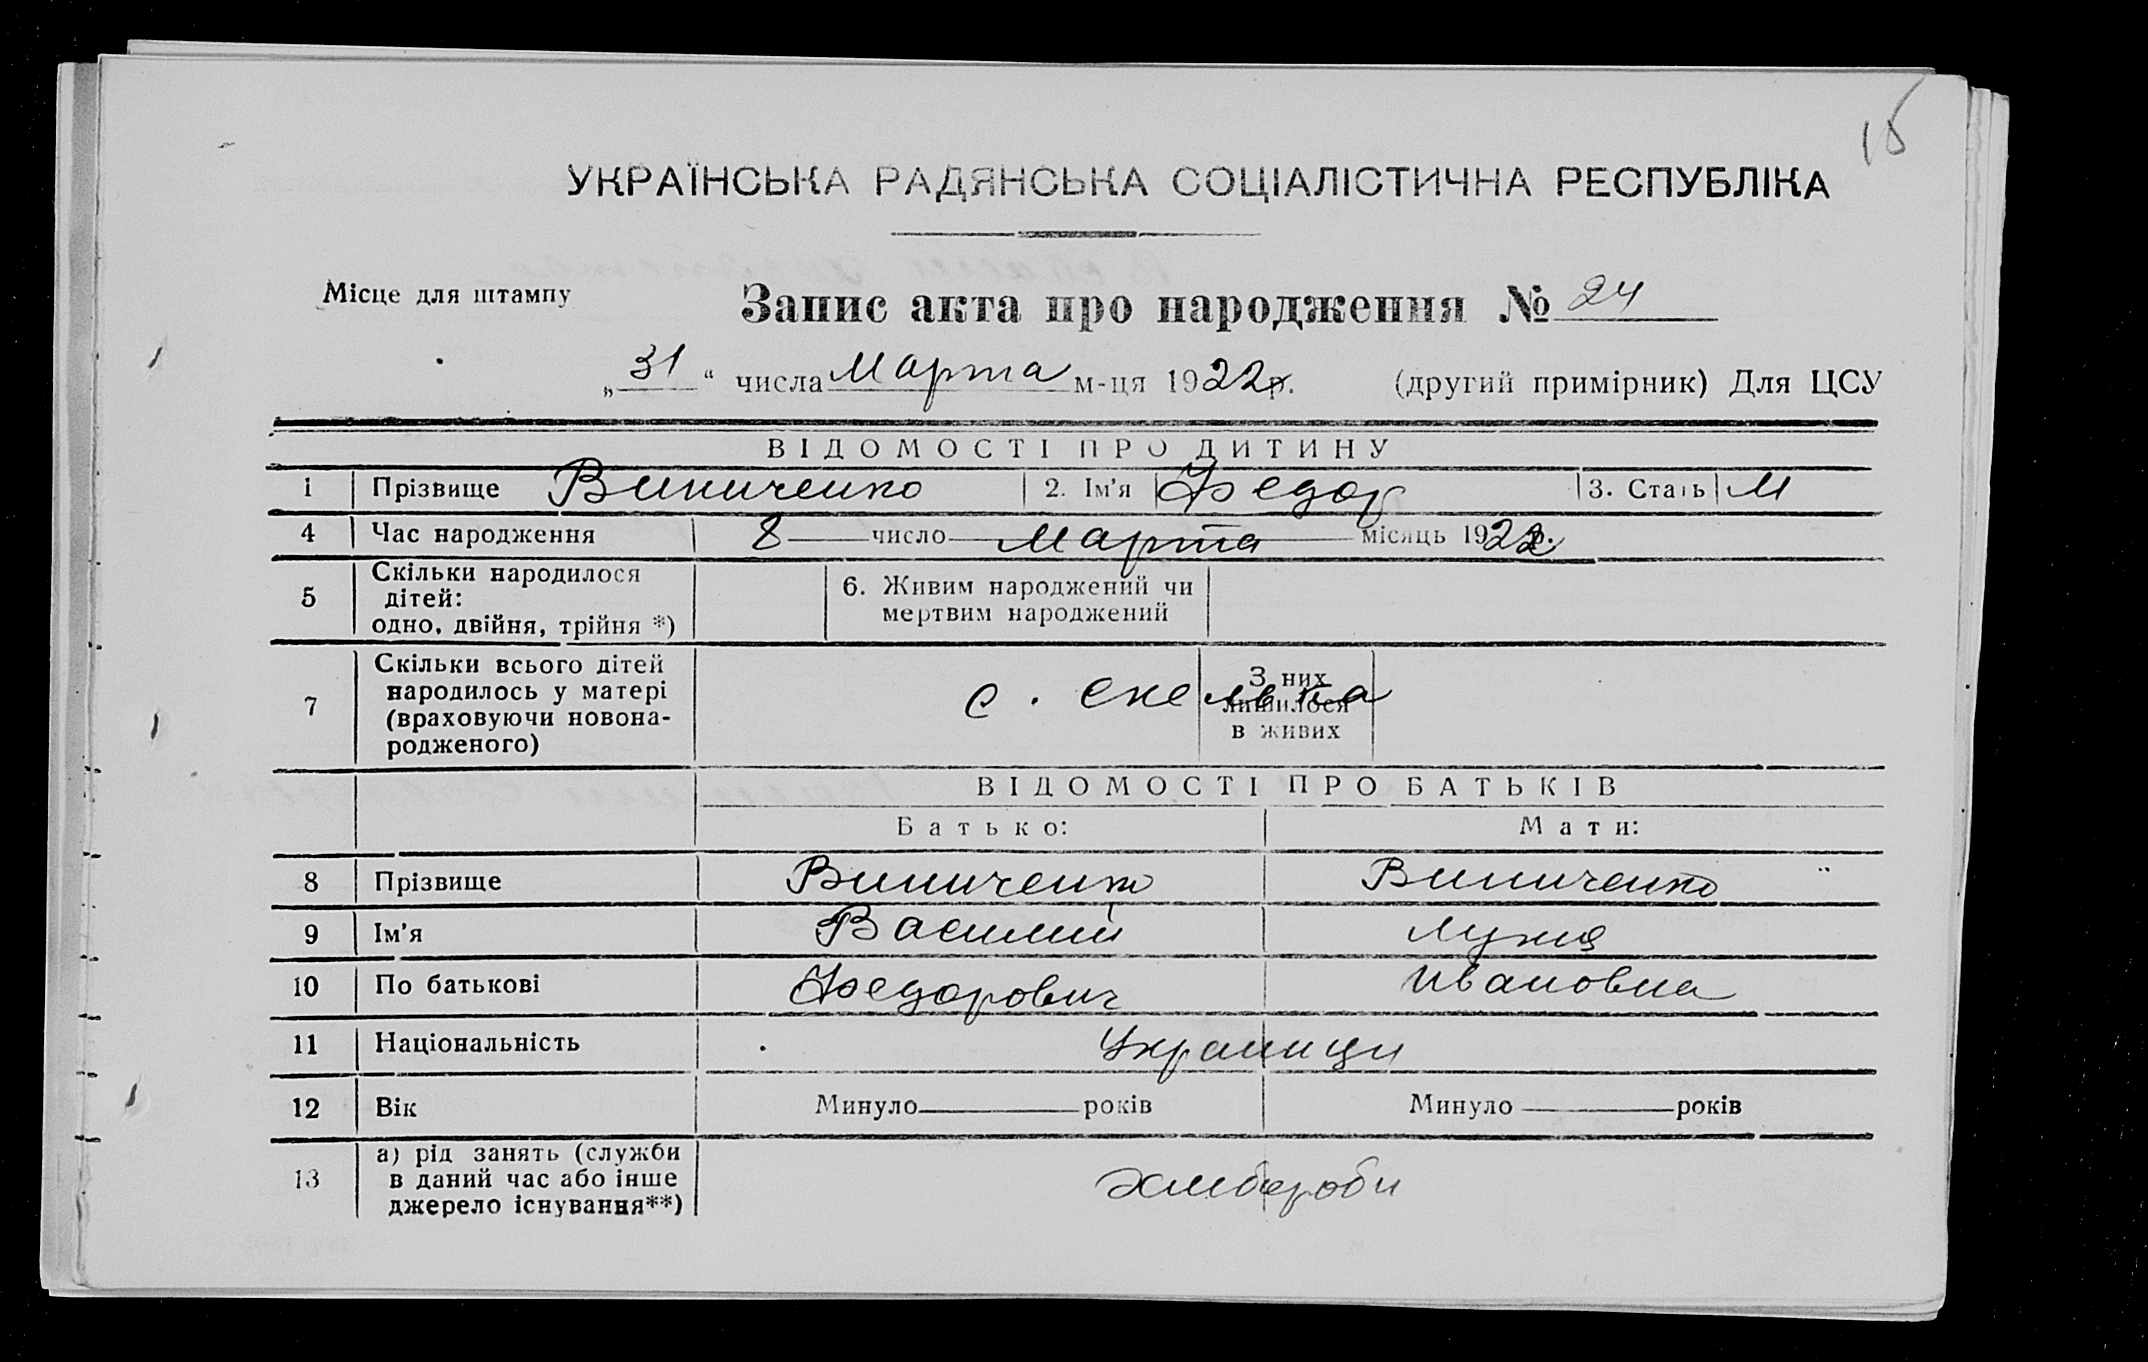 15
УКРАЇНСЬКА РАДЯНСЬКА СОЦІАЛІСТИЧНА РЕСПУБЛІКА
Місце для штампу
Запис акта про народження № 24
„31“ числа Марта м-ця 1922р. (другий примірник) Для ЦСУ
ВІДОМОСТІ ПРО ДИТИНУ
1 Прізвище Виниченко 2. Ім'я Федор 3. Стать М
4 Час народження 8 число Марта місяць 1922р.
5 Скільки народилося дітей: одно, двійня, трійня *) 6. Живим народжений чи мертвим народжений
7 Скільки всього дітей народилось у матері (враховуючи новонародженого) с. Екельвка З них лишилося в живих
ВІДОМОСТІ ПРО БАТЬКІВ
Батько: Мати:
8 Прізвище Виниченко Виниченко
9 Ім'я Василий
10 По батькові Федорович Ивановна
11 Національність Украинци
12 Вік Минуло років Минуло років
13 а) рід занять (служби в даний час або інше джерело існування**) хлебороби